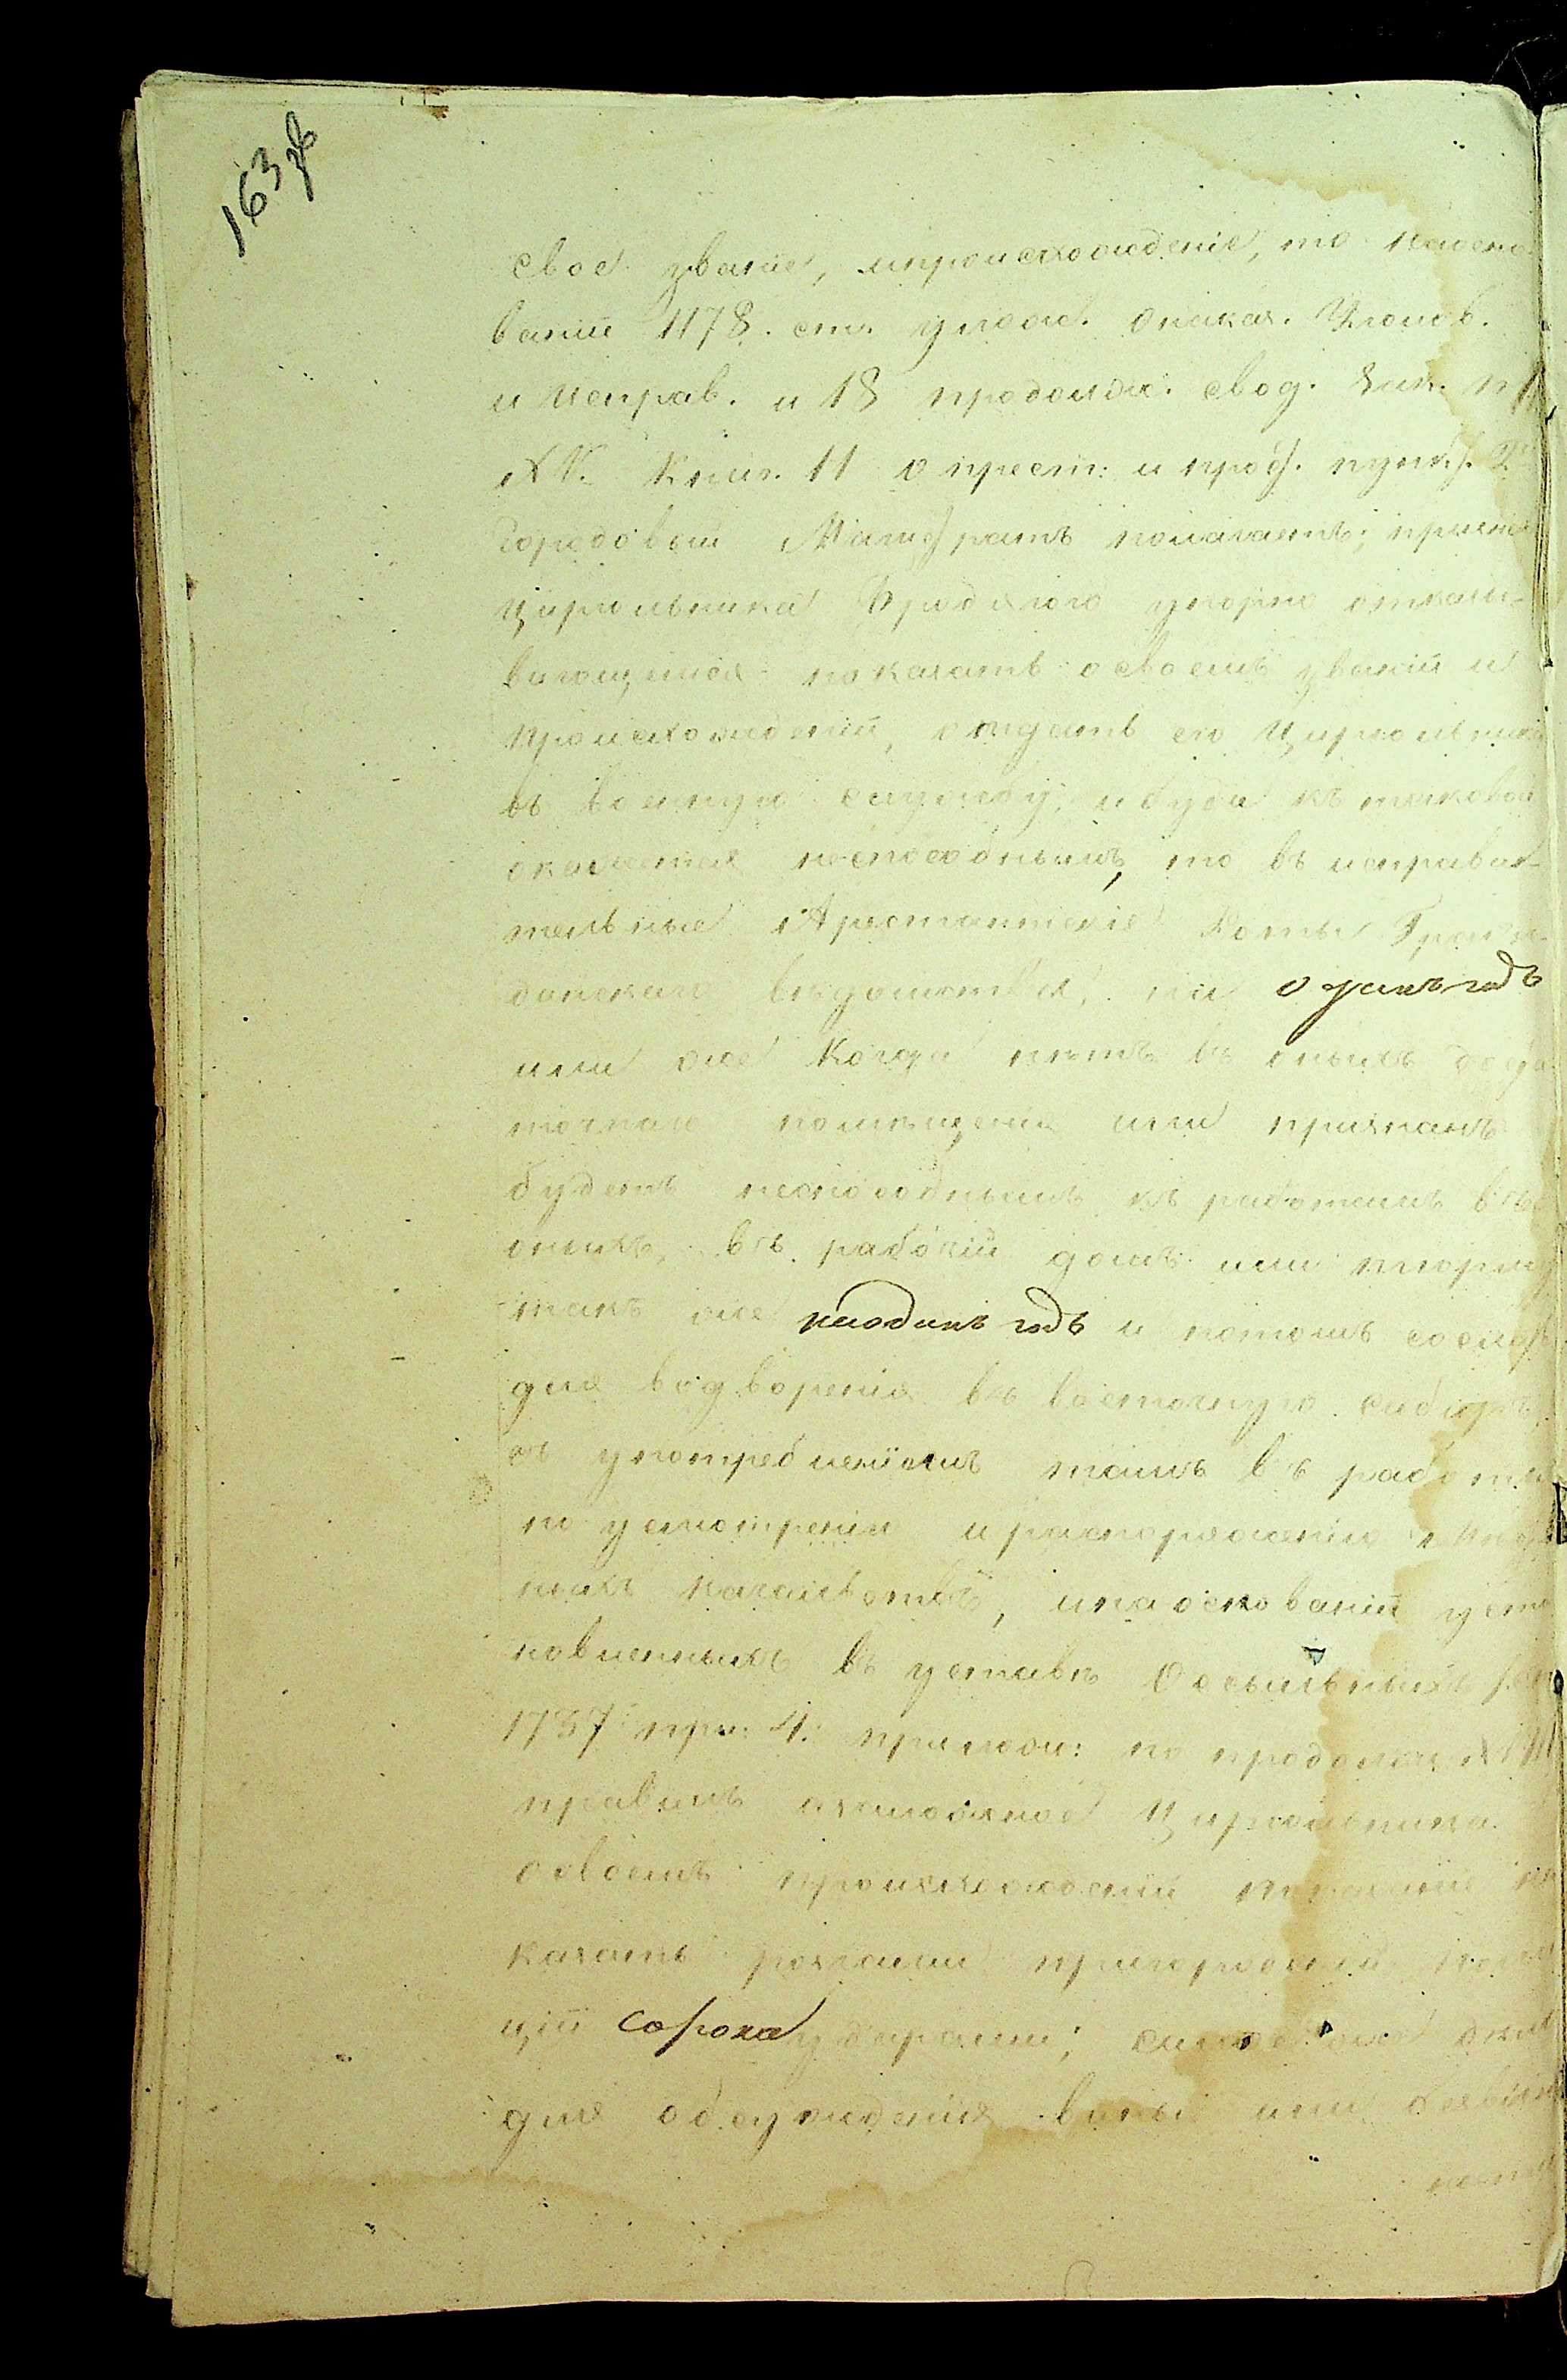 163 об
свое званіе, и происхожденіе, то на осно-
ваніи 1178. ст. улож. о наказ. Уголов.
и Исправ. и 18 продолж. свод. Зак.
XV. Книг. 11 о прест: и прод. пунк. 2
Городовый Магистратъ полагаетъ;
Цирюльника Бродягою упорно отказы-
вающимся показать о своемъ званіи и
происхожденіи, отдать его Цирюльника
въ военную службу, и буде къ таковой
окажется неспособнымъ, то въ исправи-
тельные Арестантскіе Роты Граж-
данскаго вѣдомства, на одинъ годъ
или же когда нѣтъ въ оныхъ доста
точнаго помѣщенія или признанъ
будетъ неспособнымъ къ работамъ въ
оныхъ, въ рабочій домъ или тюрьму
такъ же на одинъ годъ и потомъ сослать
для водворенія въ восточную сибирь,
съ употребленіемъ тамъ въ работы
по усмотренію и распоряженію мѣст
ныхъ начальствъ, и на основаніи уста
новленныхъ въ уставѣ о ссыльныхъ
1737 при: 4. прилож: по продолж. XVIII
правилъ а за ложное Цирюльника
о своемъ происхожденіи показаніе на
казать розгами при городской поли
ціи сорока ударами; каковое
для обсужденія вины или